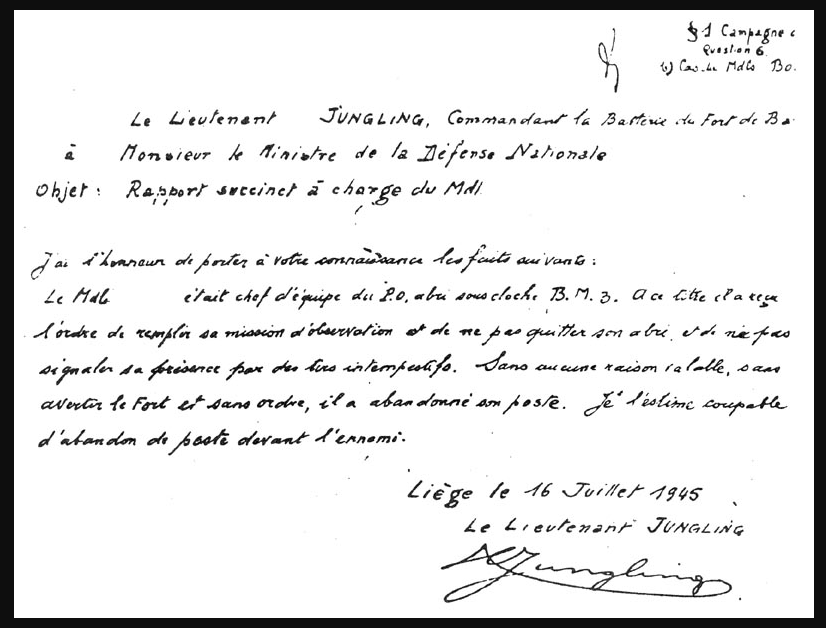 § 1 Campagne
Question 6
b) Cas du Mdls Bo.
Le Lieutenant JUNGLING, Commandant la Batterie du Fort de Ba
à Monsieur le Ministre de la Défense Nationale
Objet : Rapport succinct à charge du Mdl
J'ai l'honneur de porter à votre connaissance les faits suivants :
Le Mdls était chef d'équipe du P.O. abri sous cloche B.M.3. A ce titre il a reçu
l'ordre de remplir sa mission d'observation et de ne pas quitter son abri, et de ne pas
signaler sa présence par des tirs intempestifs. Sans aucune raison valable, sans
avertir le Fort et sans ordre, il a abandonné son poste. Je l'estime coupable
d'abandon de poste devant l'ennemi.
Liège le 16 Juillet 1945
Le Lieutenant JUNGLING
Jungling